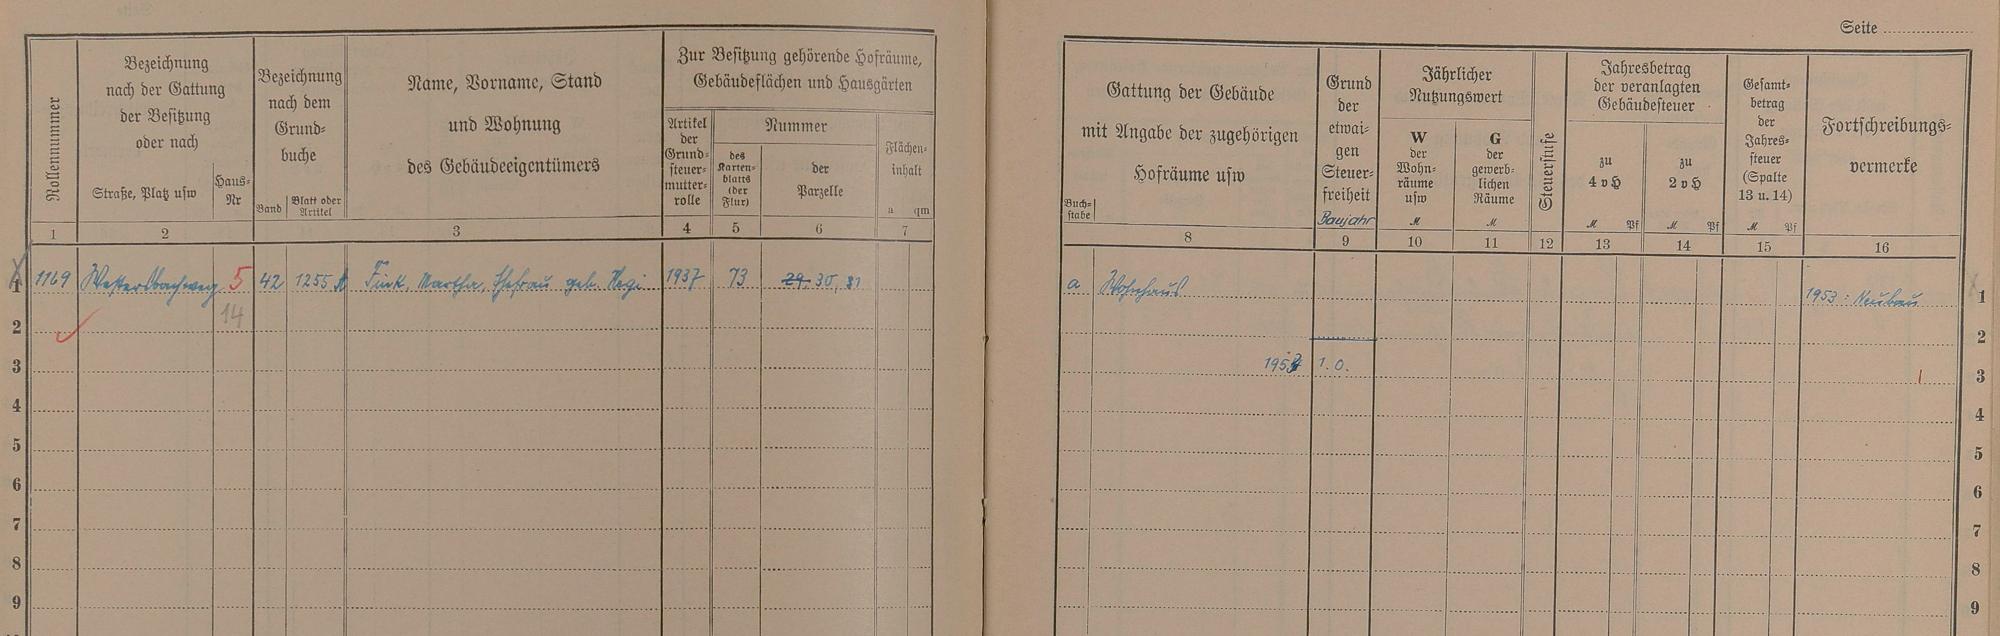 Seite
Rollennummer
Bezeichnung
nach der Gattung
der Besitzung
oder nach
Straße, Platz usw
Haus-
Nr
Bezeichnung
nach dem
Grund-
buche
Band
Blatt oder
Artikel
Name, Vorname, Stand
und Wohnung
des Gebäudeeigentümers
Zur Besitzung gehörende Hofräume,
Gebäudeflächen und Hausgärten
Artikel
der
Grund-
steuer-
mutter-
rolle
Nummer
des
Karten-
blatts
(der
Flur)
der
Parzelle
Flächen-
inhalt
a qm
1 2 3 4 5 6 7
1 1169 5 42 1255 Fink, Martha, Ehefrau geb. 1937 73 29, 30, 31
14
2
3
4
5
6
7
8
9
Gattung der Gebäude
mit Angabe der zugehörigen
Hofräume usw
Buch-
stabe
Grund
der
etwai-
gen
Steuer-
freiheit
Baujahr
Jährlicher
Nutzungswert
W
der
Wohn-
räume
usw
M
G
der
gewerb-
lichen
Räume
M
Steuerstufe
Jahresbetrag
der veranlagten
Gebäudesteuer
zu
4 v H
M Pf
zu
2 v H
M Pf
Gesamt-
betrag
der
Jahres-
steuer
(Spalte
13 u. 14)
M Pf
Fortschreibungs-
vermerke
8 9 10 11 12 13 14 15 16
a Wohnhaus 1953: Neubau 1
2
1.0. 3
4
5
6
7
8
9